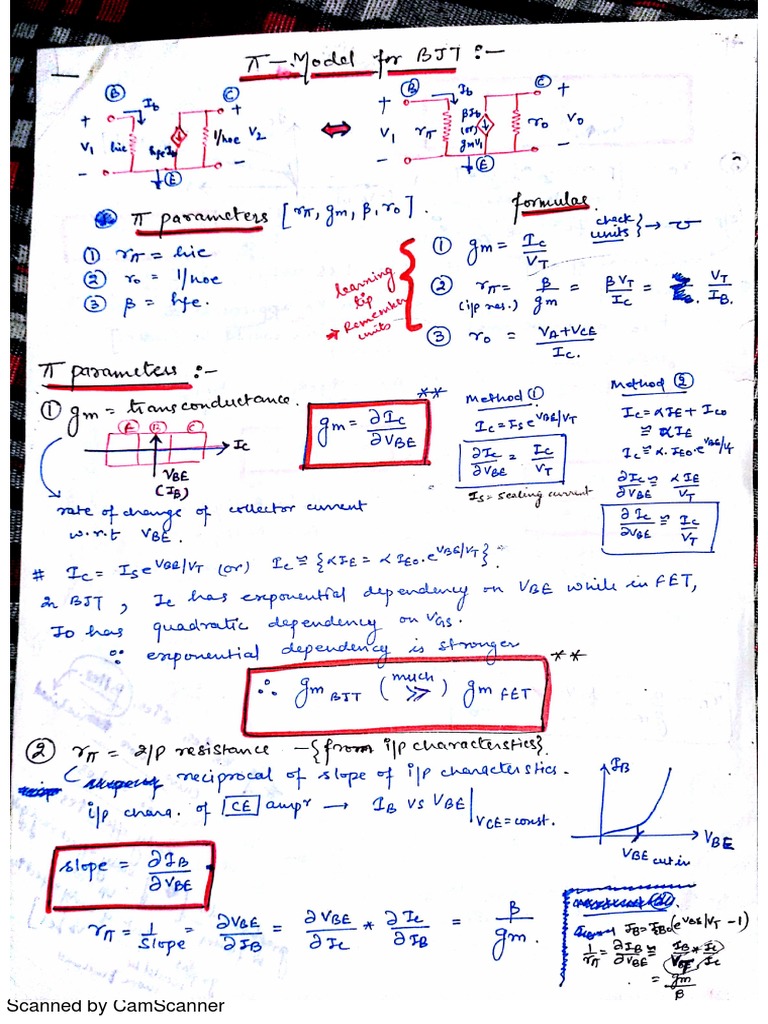 π-Model for BJT :-
B Ib C + + V1 hie hfeIb 1/hoe V2 - - E
B Ib C + + V1 rπ βIb (or) gmV1 ro Vo - - E
π parameters [rπ, gm, β, ro].
① rπ = hie
② ro = 1/hoe
③ β = hfe.
learning tip
→ Remember units
formulas
check units } → ℧
① gm = Ic/VT
② rπ = β/gm = βVT/Ic = VT/IB.
(i/p res.)
③ ro = VA+VCE/Ic.
π parameters :-
① gm = transconductance.
E B C Ic
VBE
(IB)
rate of change of collector current
w.r.t VBE.
gm = ∂Ic/∂VBE **
Method ①
Ic = Is e^VBE/VT
∂Ic/∂VBE = Ic/VT
Is = scaling current
Method ②
Ic = αIE + Ico
≅ αIE
Ic ≅ α.IEo.e^VBE/VT
∂Ic/∂VBE ≅ αIE/VT
∂Ic/∂VBE ≅ Ic/VT
# Ic = Is e^VBE/VT (or) Ic ≅ {αIE = αIEo.e^VBE/VT}.
In BJT, Ic has exponential dependency on VBE while in FET,
ID has quadratic dependency on VGS.
∵ exponential dependency is stronger
∴ gm BJT (much ≫) gm FET **
② rπ = I/P resistance - {from i/p characterstics}.
reciprocal of slope of i/p characteristics.
i/p chara. of CE ampr → IB vs VBE | VCE = const.
IB
VBE
VBE cut in
slope = ∂IB/∂VBE
rπ = 1/slope = ∂VBE/∂IB = ∂VBE/∂Ic * ∂Ic/∂IB = β/gm.
IB = IBo(e^VBE/VT - 1)
1/rπ = ∂IB/∂VBE ≅ IB/VBE * Ic/Ic
= gm/β
Scanned by CamScanner